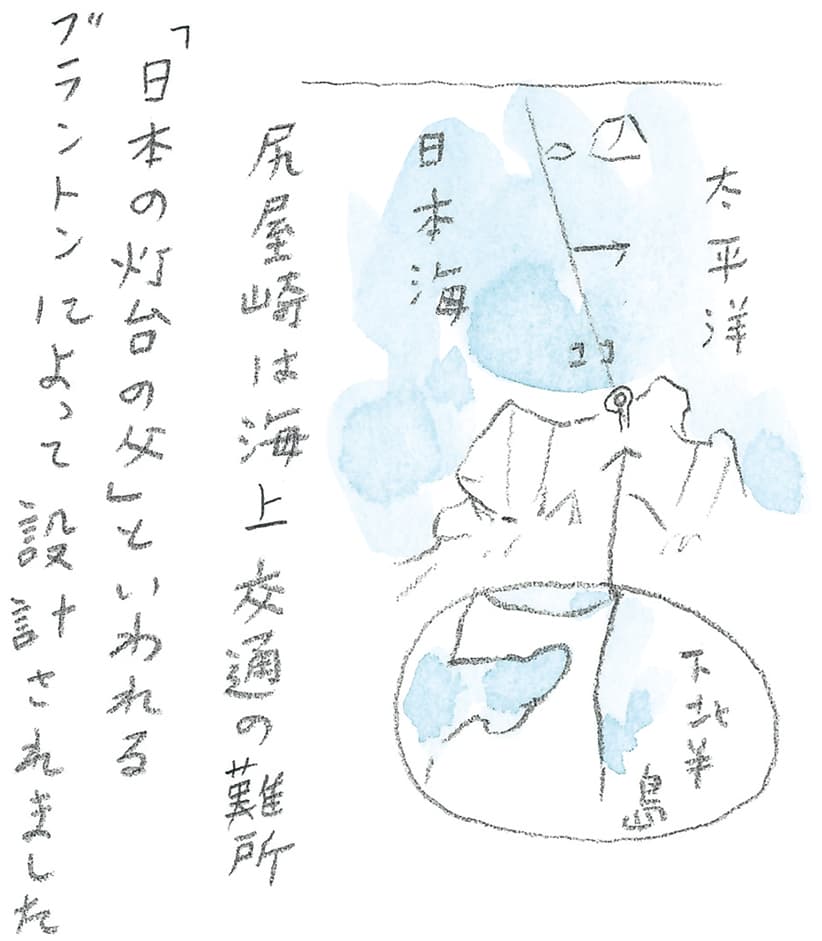 太平洋
日本海
ココ
下北半島
尻屋崎は海上交通の難所
「日本の灯台の父」といわれる
ブラントンによって設計されました